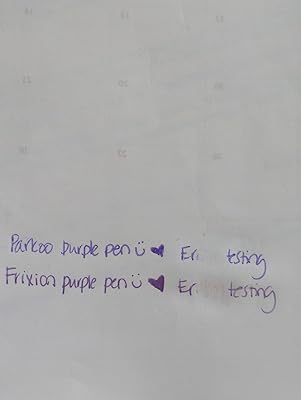 Parkoo purple pen ü ♥ testing
Frixion purple pen ü ♥ testing